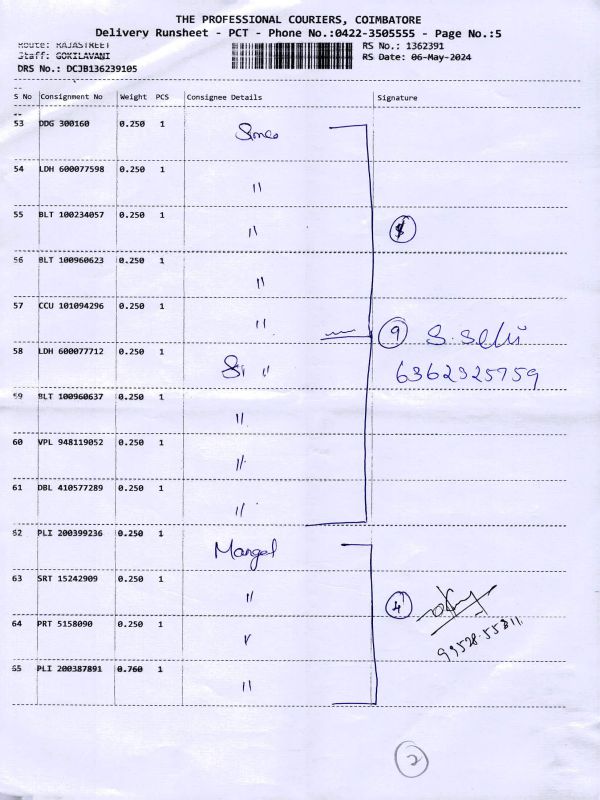 THE PROFESSIONAL COURIERS, COIMBATORE
Delivery Runsheet - PCT - Phone No.:0422-3505555 - Page No.:5
Route: RAJASTREET
RS No.: 1362391
Staff: GOKILAVANI
RS Date: 06-May-2024
DRS No.: DCJB136239105
S No Consignment No Weight PCS Consignee Details Signature
53 DDG 300160 0.250 1
54 LDH 600077598 0.250 1 "
55 BLT 100234057 0.250 1 "
56 BLT 100960623 0.250 1 "
57 CCU 101094296 0.250 1 "
9
58 LDH 600077712 0.250 1 "
6362325759
59 BLT 100960637 0.250 1 "
60 VPL 948119052 0.250 1 "
61 DBL 410577289 0.250 1 "
62 PLI 200399236 0.250 1 Mangal
63 SRT 15242909 0.250 1 "
4
64 PRT 5158090 0.250 1 "
65 PLI 200387891 0.760 1 "
2